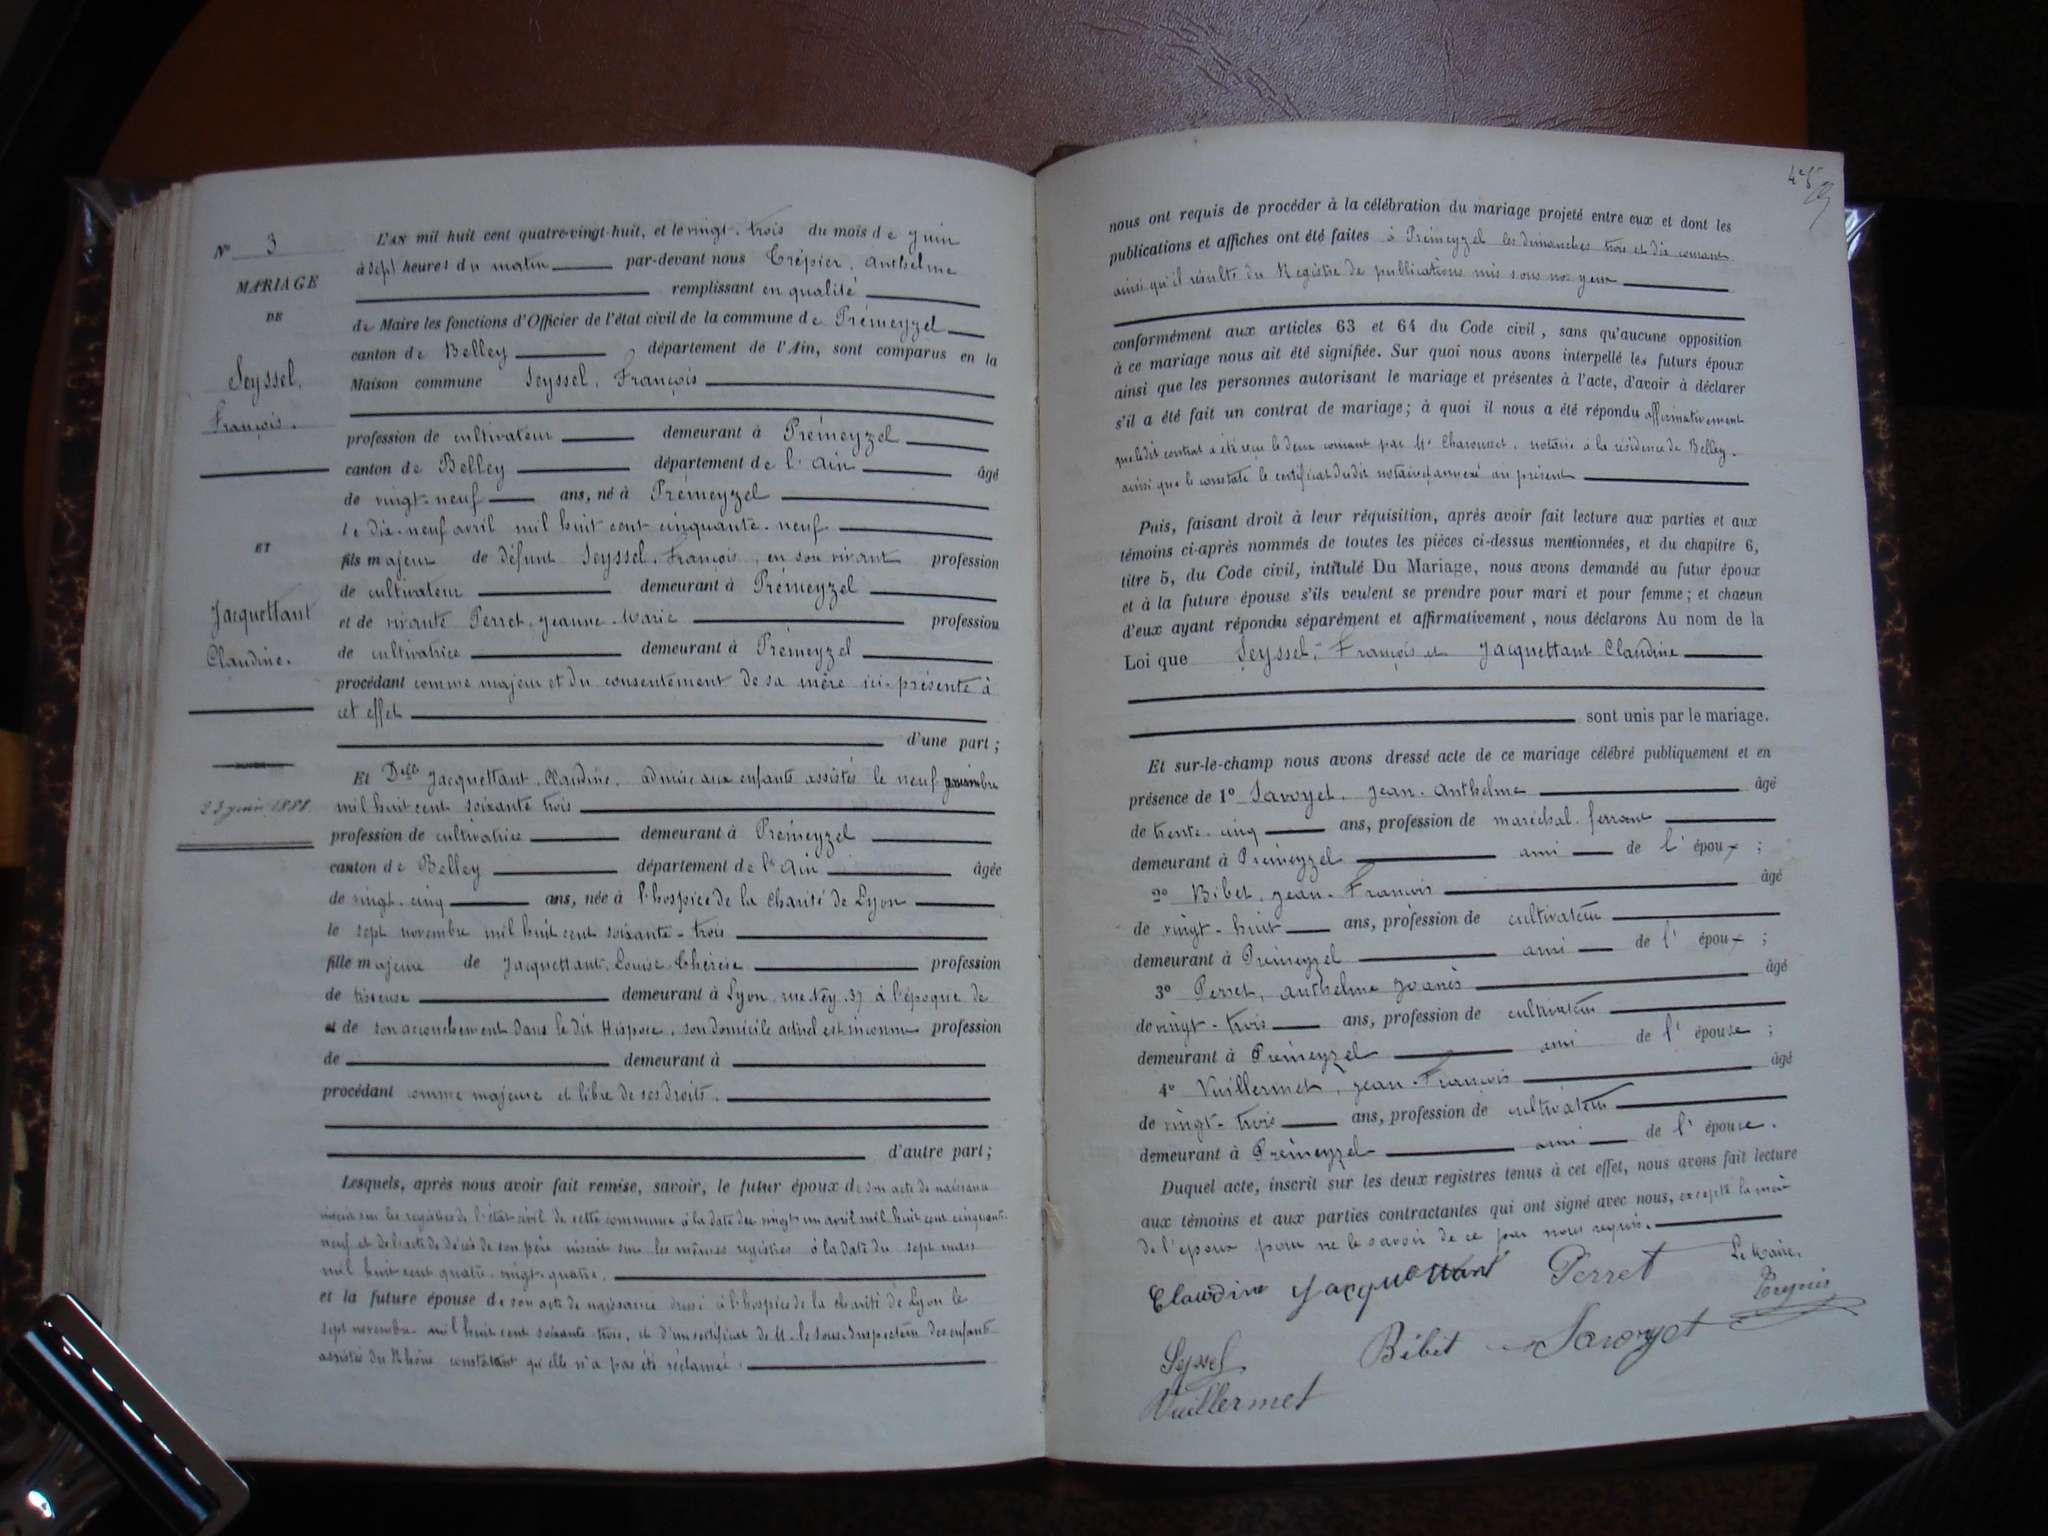 N° 3
MARIAGE
DE
Seyssel,
François.
ET
Jacquettant
Claudine.
23 juin 1888.
L'AN mil huit cent quatre-vingt-huit, et le vingt-trois du mois de juin
à sept heures du matin par-devant nous Trépier, Anthelme
remplissant en qualité
de Maire les fonctions d'Officier de l'état civil de la commune de Prémeyzel
canton de Belley département de l'Ain, sont comparus en la
Maison commune Seyssel, François
profession de cultivateur demeurant à Prémeyzel
canton de Belley département de l'Ain âgé
de vingt-neuf ans, né à Prémeyzel
le dix-neuf avril mil huit cent cinquante-neuf
fils majeur de défunt Seyssel, François, en son vivant profession
de cultivateur demeurant à Prémeyzel
et de vivante Perret, Jeanne-Marie profession
de cultivatrice demeurant à Prémeyzel
procédant comme majeur et du consentement de sa mère ici-présente à
cet effet
d'une part ;
Et Delle Jacquettant, Claudine, admise aux enfants assistés le neuf
mil huit cent soixante trois
profession de cultivatrice demeurant à Prémeyzel
canton de Belley département de l'Ain âgée
de vingt-cinq ans, née à l'hospice de la Charité de Lyon
le sept novembre mil huit cent soixante-trois
fille majeure de Jacquettant, Louise Thérèse profession
de tisseuse demeurant à Lyon, rue Ney, 37 à l'époque de
et de son accouchement dans le dit Hospice, son domicile actuel est inconnu profession
de demeurant à
procédant comme majeure et libre de ses droits.
d'autre part ;
Lesquels, après nous avoir fait remise, savoir, le futur époux de son acte de naissance
inscrit sur les registres de l'état civil de cette commune à la date du vingt un avril mil huit cent cinquante-
neuf et de l'acte de décès de son père inscrit sur les mêmes registres à la date du sept mars
mil huit cent quatre-vingt-quatre,
et la future épouse de son acte de naissance dressé à l'hospice de la Charité de Lyon le
sept novembre mil huit cent soixante-trois, et d'un certificat de M. le Sous-Inspecteur des enfants
assistés du Rhône constatant qu'elle n'a pas été réclamée.
nous ont requis de procéder à la célébration du mariage projeté entre eux et dont les
publications et affiches ont été faites à Prémeyzel les dimanches trois et dix courant
ainsi qu'il résulte du Registre de publications mis sous nos yeux
conformément aux articles 63 et 64 du Code civil, sans qu'aucune opposition
à ce mariage nous ait été signifiée. Sur quoi nous avons interpellé les futurs époux
ainsi que les personnes autorisant le mariage et présentes à l'acte, d'avoir à déclarer
s'il a été fait un contrat de mariage ; à quoi il nous a été répondu affirmativement
que le dit contrat a été reçu le deux courant par Me Charousset, notaire à la résidence de Belley,
ainsi que le constate le certificat du dit notaire annexé au présent
Puis, faisant droit à leur réquisition, après avoir fait lecture aux parties et aux
témoins ci-après nommés de toutes les pièces ci-dessus mentionnées, et du chapitre 6,
titre 5, du Code civil, intitulé Du Mariage, nous avons demandé au futur époux
et à la future épouse s'ils veulent se prendre pour mari et pour femme ; et chacun
d'eux ayant répondu séparément et affirmativement, nous déclarons Au nom de la
Loi que Seyssel, François et Jacquettant Claudine
sont unis par le mariage.
Et sur-le-champ nous avons dressé acte de ce mariage célébré publiquement et en
présence de 1° Savoyet, Jean-Anthelme âgé
de trente-cinq ans, profession de maréchal-ferrant
demeurant à Prémeyzel ami de l'époux ;
2° Bibet, Jean-François âgé
de vingt-huit ans, profession de cultivateur
demeurant à Prémeyzel ami de l'époux ;
3° Perret, Anthelme Joanès âgé
de vingt-trois ans, profession de cultivateur
demeurant à Prémeyzel ami de l'épouse ;
4° Vuillermet, Jean-François âgé
de vingt-trois ans, profession de cultivateur
demeurant à Prémeyzel ami de l'épouse.
Duquel acte, inscrit sur les deux registres tenus à cet effet, nous avons fait lecture
aux témoins et aux parties contractantes qui ont signé avec nous, excepté la mère
de l'époux pour ne le savoir de ce par nous requis.
Claudine Jacquettant Perret Le Maire,
Seyssel Bibet Savoyet
Vuillermet